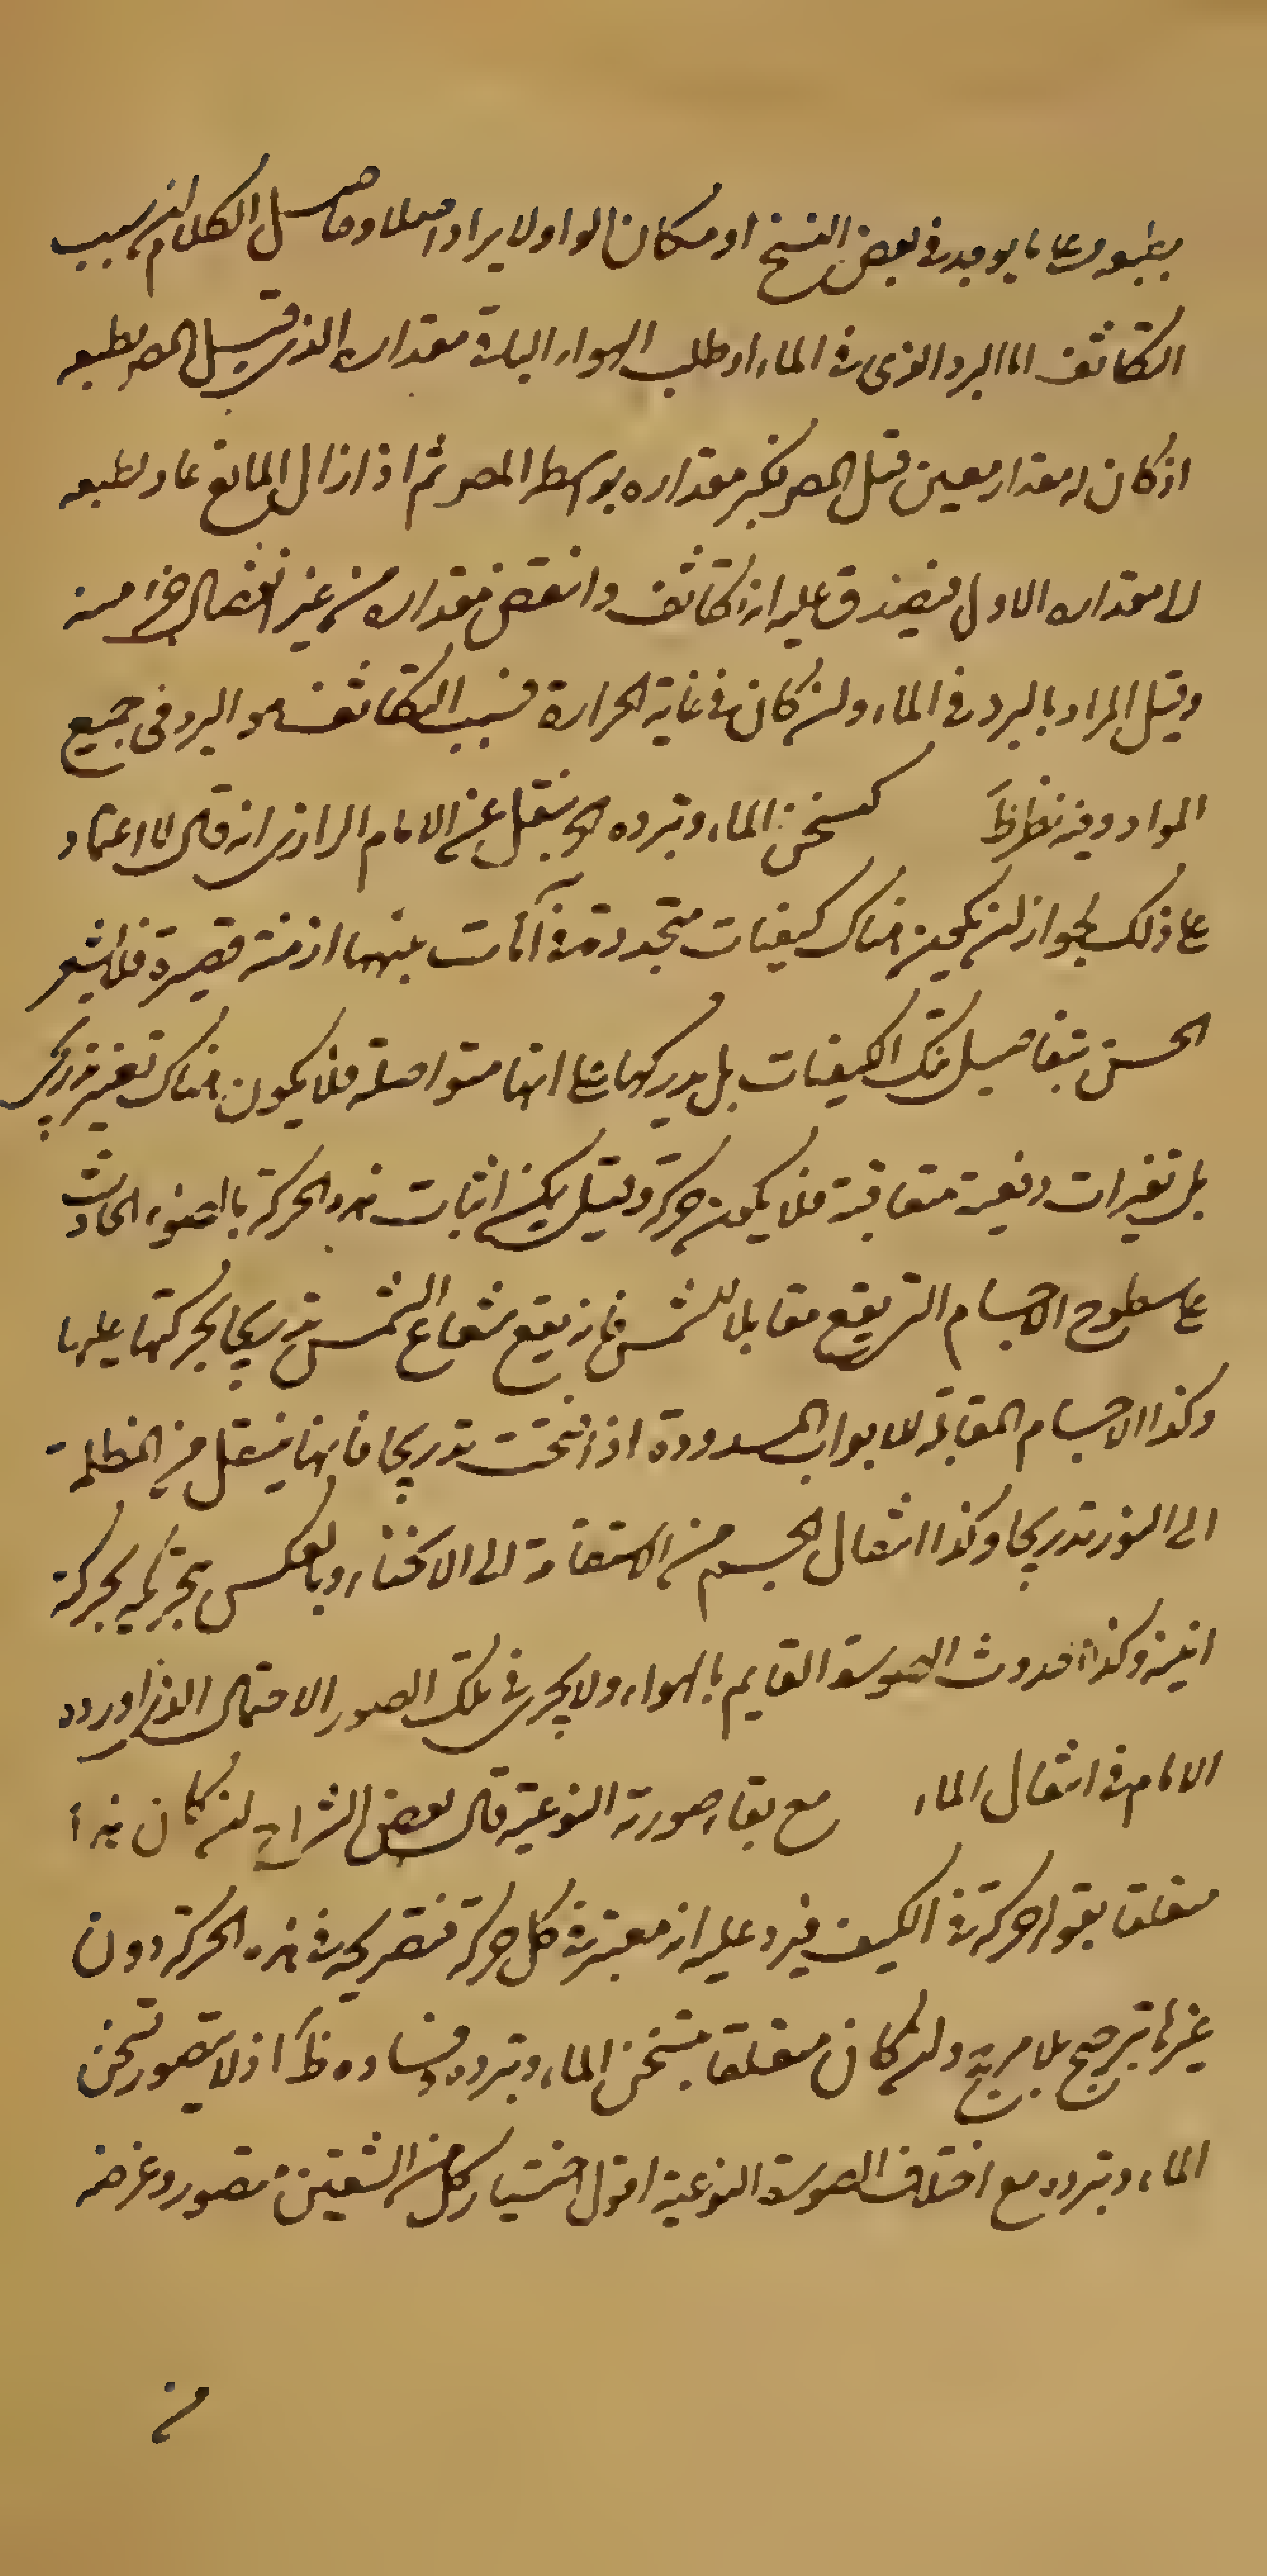 بطبعه وعلى ما يوجد في بعض النسخ او مكان الواو لا يراد اصلا وحاصل الكلام ان سبب
التكاثف اما البرد الذي في الماء او طلب الهواء الباقي مقداره الذي قبل المص بطبعه
اذ كان له مقدار معين قبل المص فكبر مقداره بواسطة المص ثم اذا زال المانع عاد بطبعه
الى مقداره الاول فيصدق عليه انه تكاثف وانتقص مقداره من غير انفصال جزء منه
وقيل المراد بالبرد في الماء وان كان في غاية الحرارة فسبب التكاثف هو البرد في جميع
المواد وفيه نظر ظ كتسخن الماء وتبرده الخ نقل عن الامام الرازي انه قال لا اعتماد
على ذلك لجواز ان يكون هناك كيفيات متجددة في آنات بينها ازمنة قصيرة فلا يشعر
الحس بتفاصيل تلك الكيفيات بل يدركها على انها متواصلة فلا يكون هناك تغير تدريجي
بل تغيرات دفعية متعاقبة فلا يكون حركة وقيل يمكن اثبات هذه الحركة بالضوء الحادث
على سطوح الاجسام التي يقع مقابلا للشمس فانه يقع شعاع الشمس تدريجا بحركتها عليها
وكذا الاجسام المقابلة للابواب المسدودة اذا فتحت تدريجا فانها ينتقل من الظلمة
الى النور تدريجا وكذا انتقال الجسم من الاستقامة الى الانحناء وبالعكس بتحريكه بحركة
اينية وكذا حدوث الصوت القايم بالهواء ولا يجرى في تلك الصور الاحتمال الذي اورده
الامام في انتقال الماء مع بقاء صورته النوعية قال بعض الشراح ان كان هذا
متعلقا بقوله حركة في الكيف فيرد عليه انه معتبر في كل حركة فتصريحه في هذه الحركة دون
غيرها ترجيح بلا مرجح وان كان متعلقا بتسخن الماء وتبرده ففساده ظ اذ لا يتصور تسخن
الماء وتبرده مع اختلاف الصورة النوعية اقول اختيار كل من الشقين متصور وغرضه
من